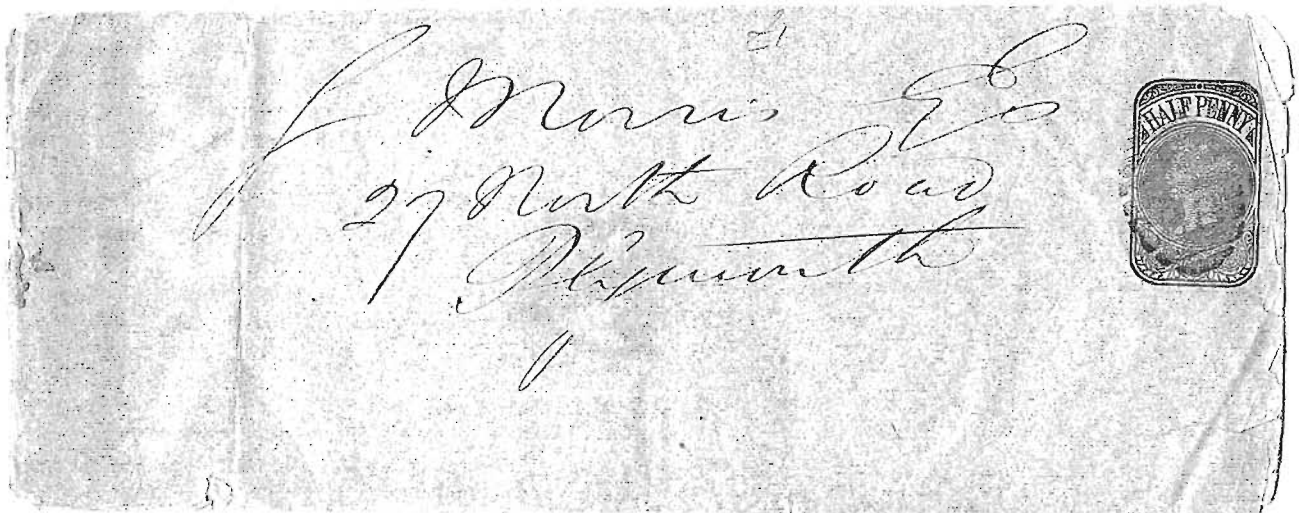 J Morris Esq
27 North Road
Plymouth
HALF PENNY